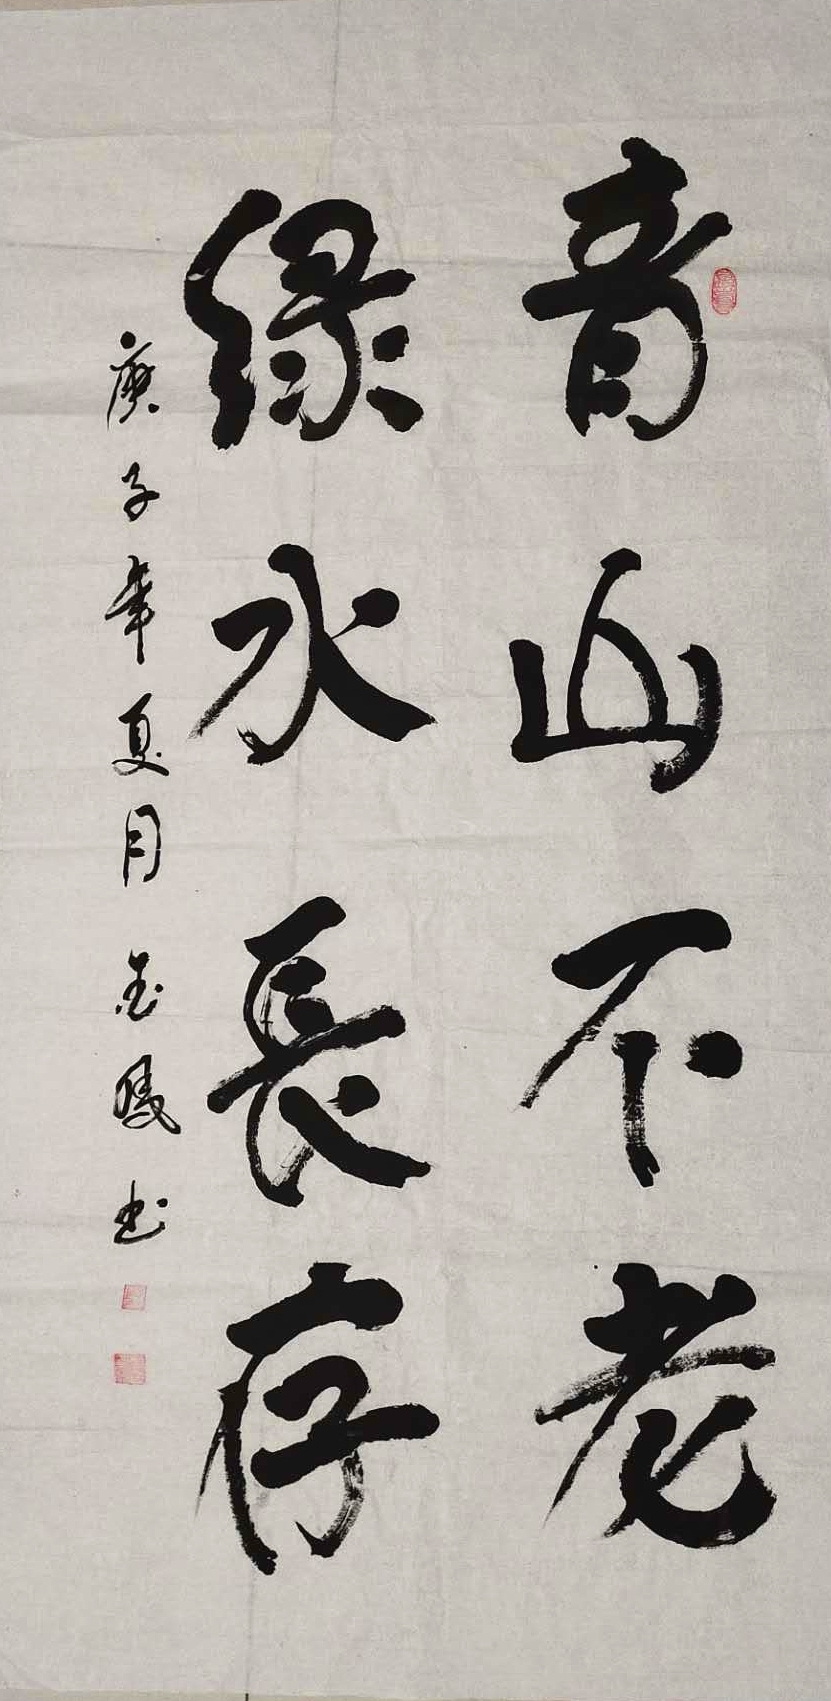 青山不老
緑水長存
庚子年夏月 書